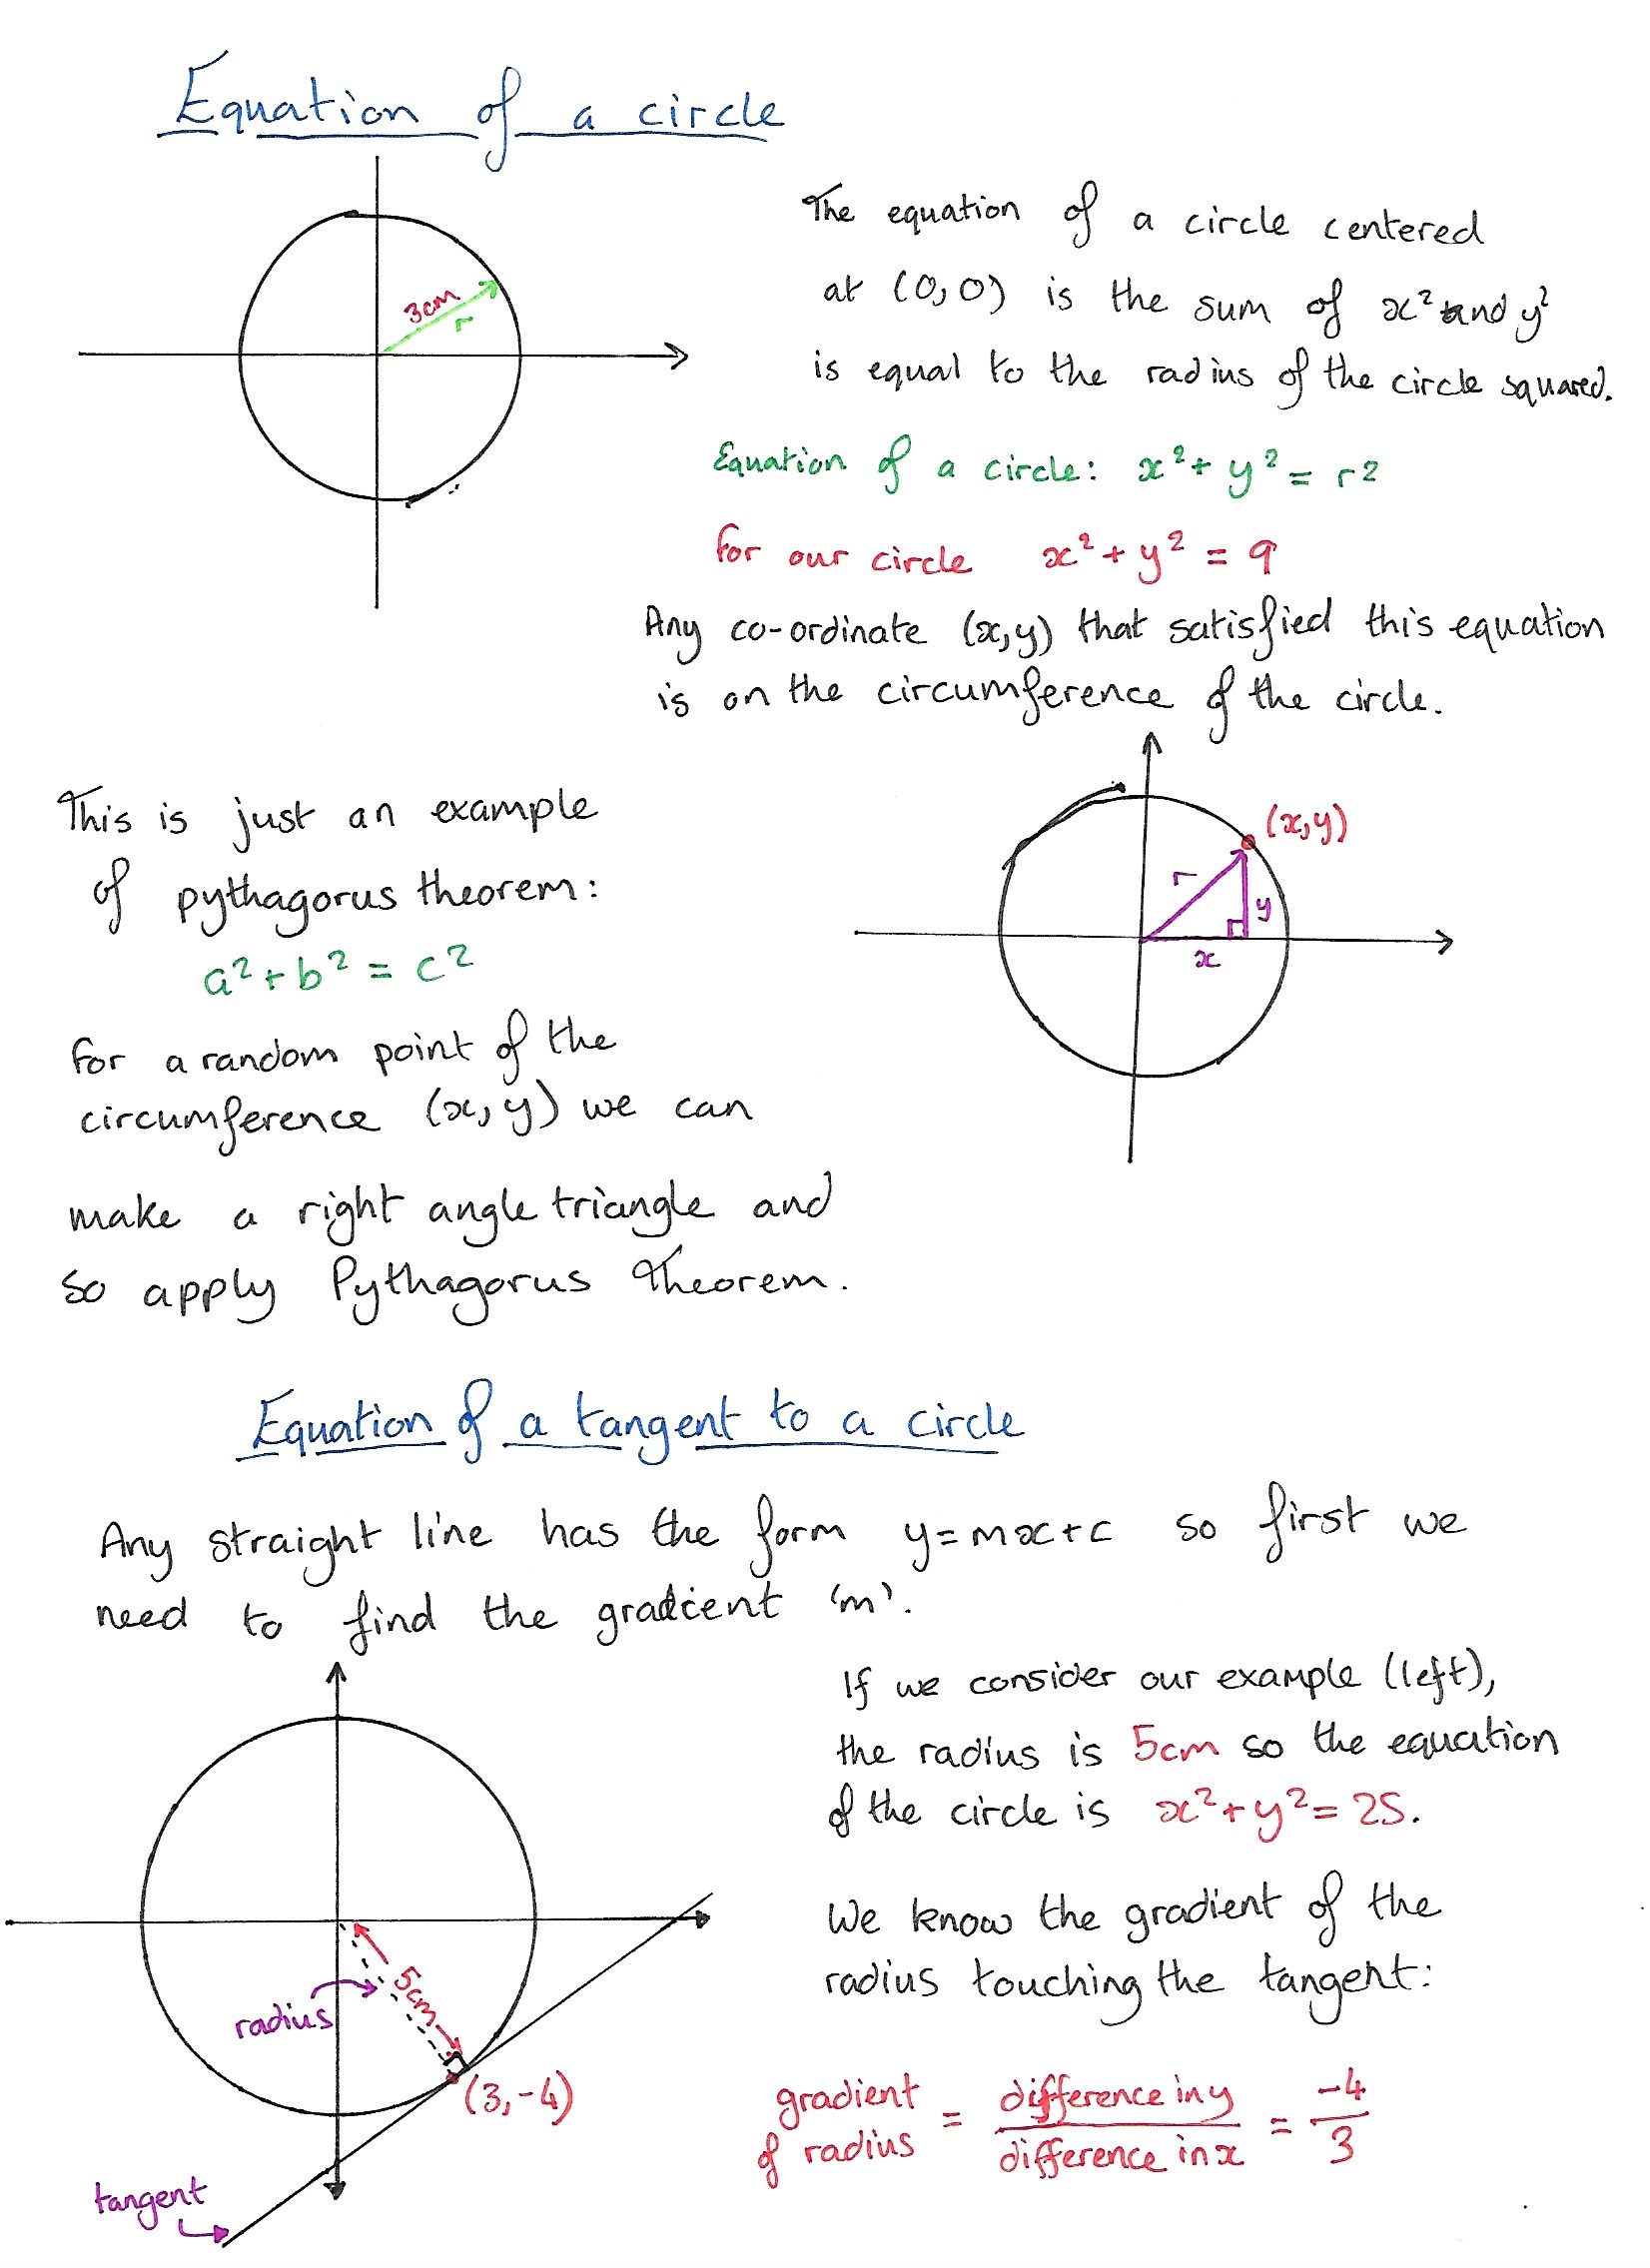 Equation of a circle
3cm
r
The equation of a circle centered
at (0,0) is the sum of x² and y²
is equal to the radius of the circle squared.
Equation of a circle: x² + y² = r²
For our circle x² + y² = 9
Any co-ordinate (x,y) that satisfied this equation
is on the circumference of the circle.
This is just an example
of pythagorus theorem:
a² + b² = c²
For a random point of the
circumference (x, y) we can
make a right angle triangle and
so apply Pythagorus Theorem.
(x,y)
r
y
x
Equation of a tangent to a circle
Any straight line has the form y=mx+c so first we
need to find the gradient 'm'.
If we consider our example (left),
the radius is 5cm so the equation
of the circle is x² + y² = 25.
We know the gradient of the
radius touching the tangent:
5cm
radius
(3,-4)
tangent
gradient of radius = difference in y / difference in x = -4/3